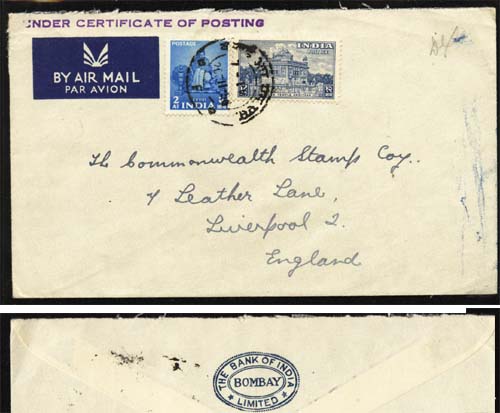 UNDER CERTIFICATE OF POSTING
BY AIR MAIL
PAR AVION
POSTAGE
2
AS
INDIA
INDIA
12
The Commonwealth Stamps Coy.
4 Leather Lane,
Liverpool 2.
England
THE BANK OF INDIA
BOMBAY
LIMITED